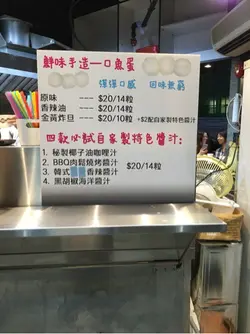 鮮味手造一口魚蛋
彈彈口感 回味無窮
原味 --- $20/14粒
香辣油 --- $20/14粒
金黃炸旦 --- $20/10粒 +$2配自家製特色醬汁
四款必試自家製特色醬汁:
1. 秘製椰子油咖哩汁
2. BBQ肉鬆燒烤醬汁
3. 韓式 香辣醬汁
4. 黑胡椒海洋醬汁
$20/14粒